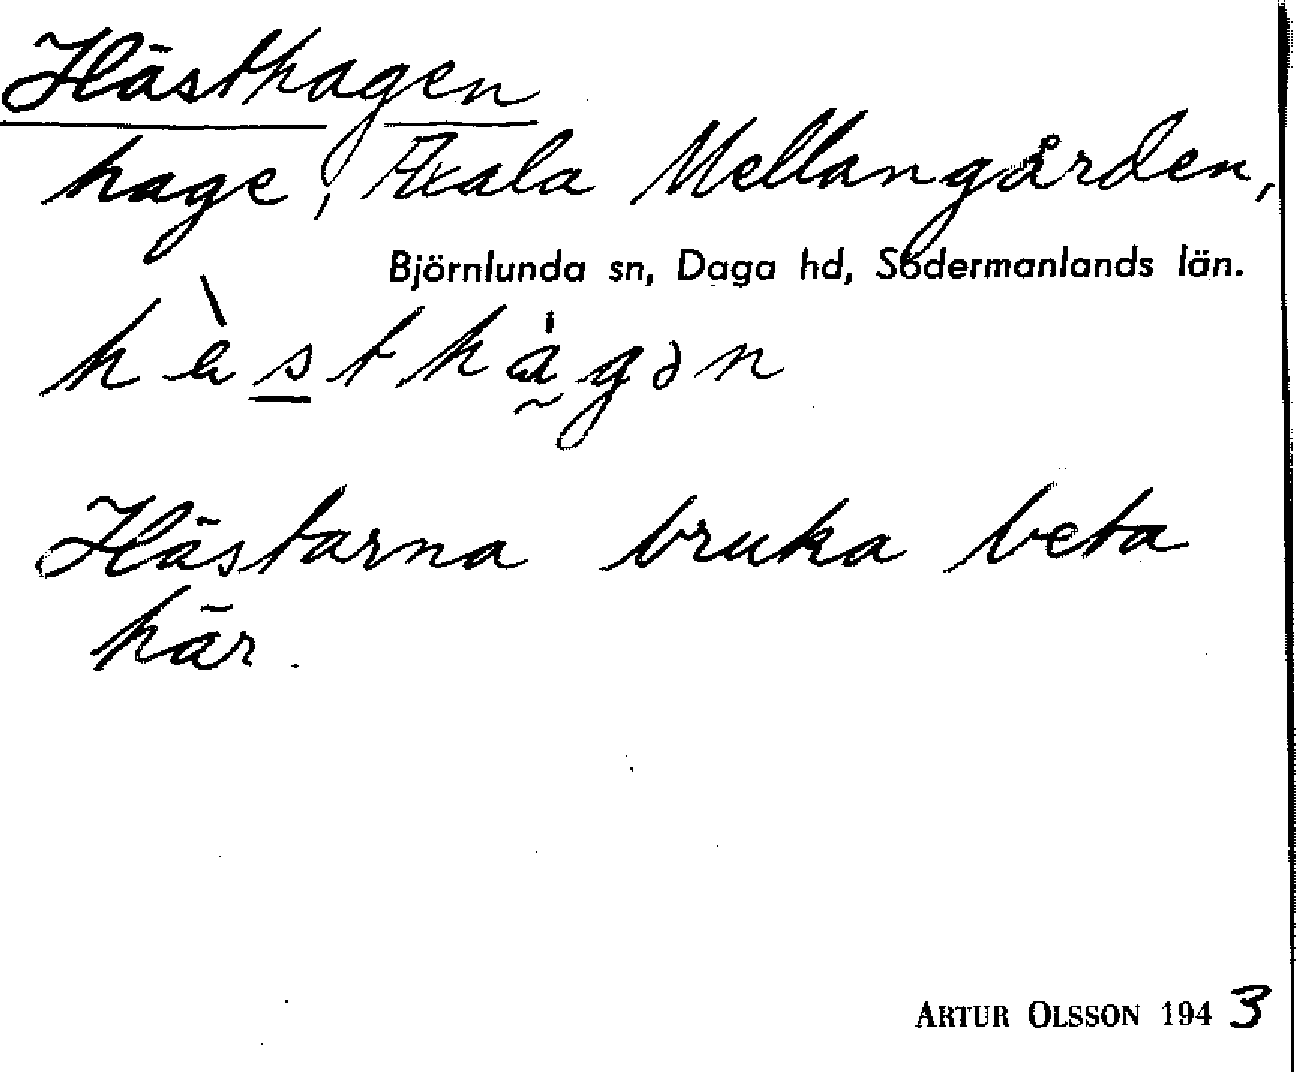 Hästhagen
hage, Mellangården,
Björnlunda sn, Daga hd, Södermanlands län.
Hästarna bruka beta
här.
ARTUR OLSSON 1943